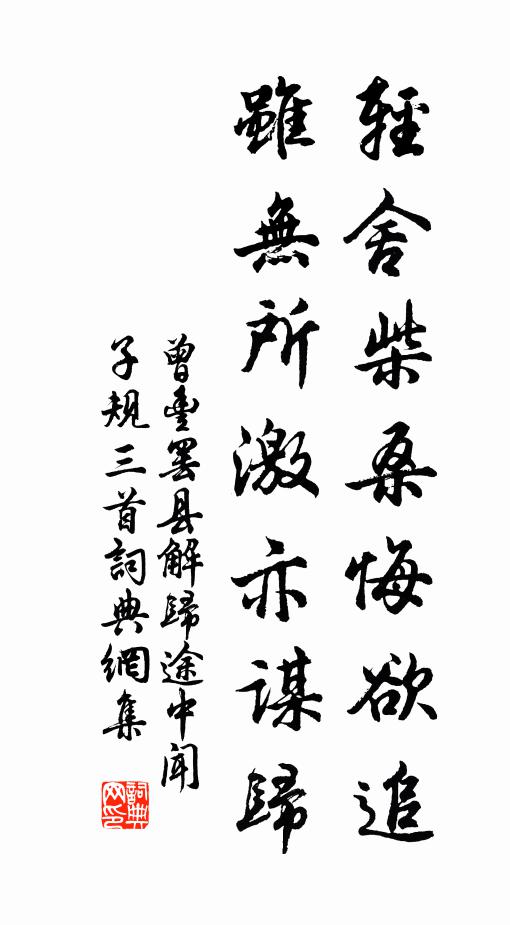 輕舍柴桑悔欲追
雖無所激亦謀歸
曾豊罢县解歸途中闻
子规三首詞典網集
詞典网印